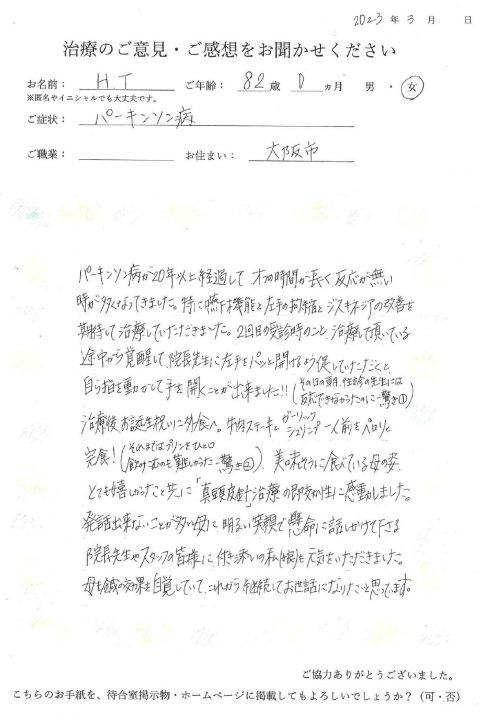 2023年3月 日
治療のご意見・ご感想をお聞かせください
お名前： H.T ご年齢： 82歳 0ヵ月 男・女
※匿名やイニシャルでも大丈夫です。
ご症状： パーキンソン病
ご職業： お住まい： 大阪市
パーキンソン病が20年以上経過して オフの時間が長く反応が無い
時が多くなってきました。特に嚥下機能と左手の拘縮とジスキネジアの改善を
期待して治療していただきました。2回目の受診時のこと、治療して頂いている
途中から覚醒して、院長先生に左手をパッと開けるよう促していただくと、
自ら指を動かして手を開くことが出来ました!!(その日の朝、往診の先生には
反応できなかったのに…驚き①)
治療後お誕生祝いに外食へ。牛肉ステーキとガーリック
シュリンプ一人前をペロリと
完食!(それまではプリンをひと口
飲み込むのも難しかった…驚き②)、美味しそうに食べている母の姿、
とても嬉しかったことと共に「真頭皮針」治療の即効性に感動しました。
発話出来ないことが多い母に、明るい笑顔で懸命に話しかけて下さる
院長先生やスタッフの皆様に、付き添いの私(娘)も元気をいただきました。
母も鍼の効果を自覚していて、これからも継続してお世話になりたいと思っています。
ご協力ありがとうございました。
こちらのお手紙を、待合室掲示物・ホームページに掲載してもよろしいでしょうか？（可・否）